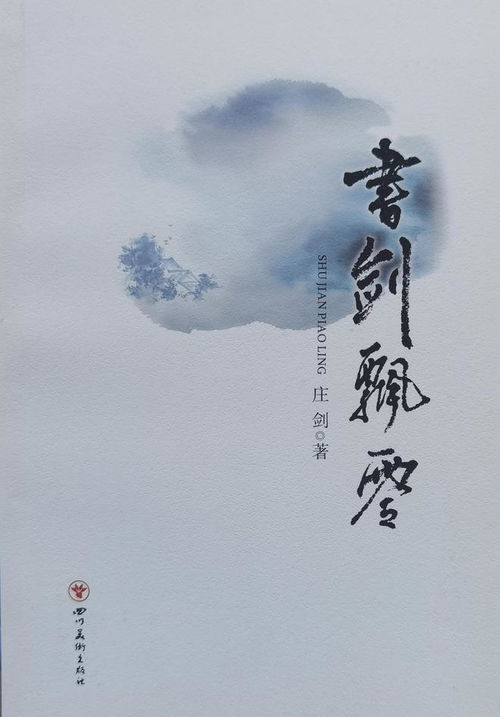 書劍飄零
SHU JIAN PIAO LING
庄剑◎著
四川美術出版社